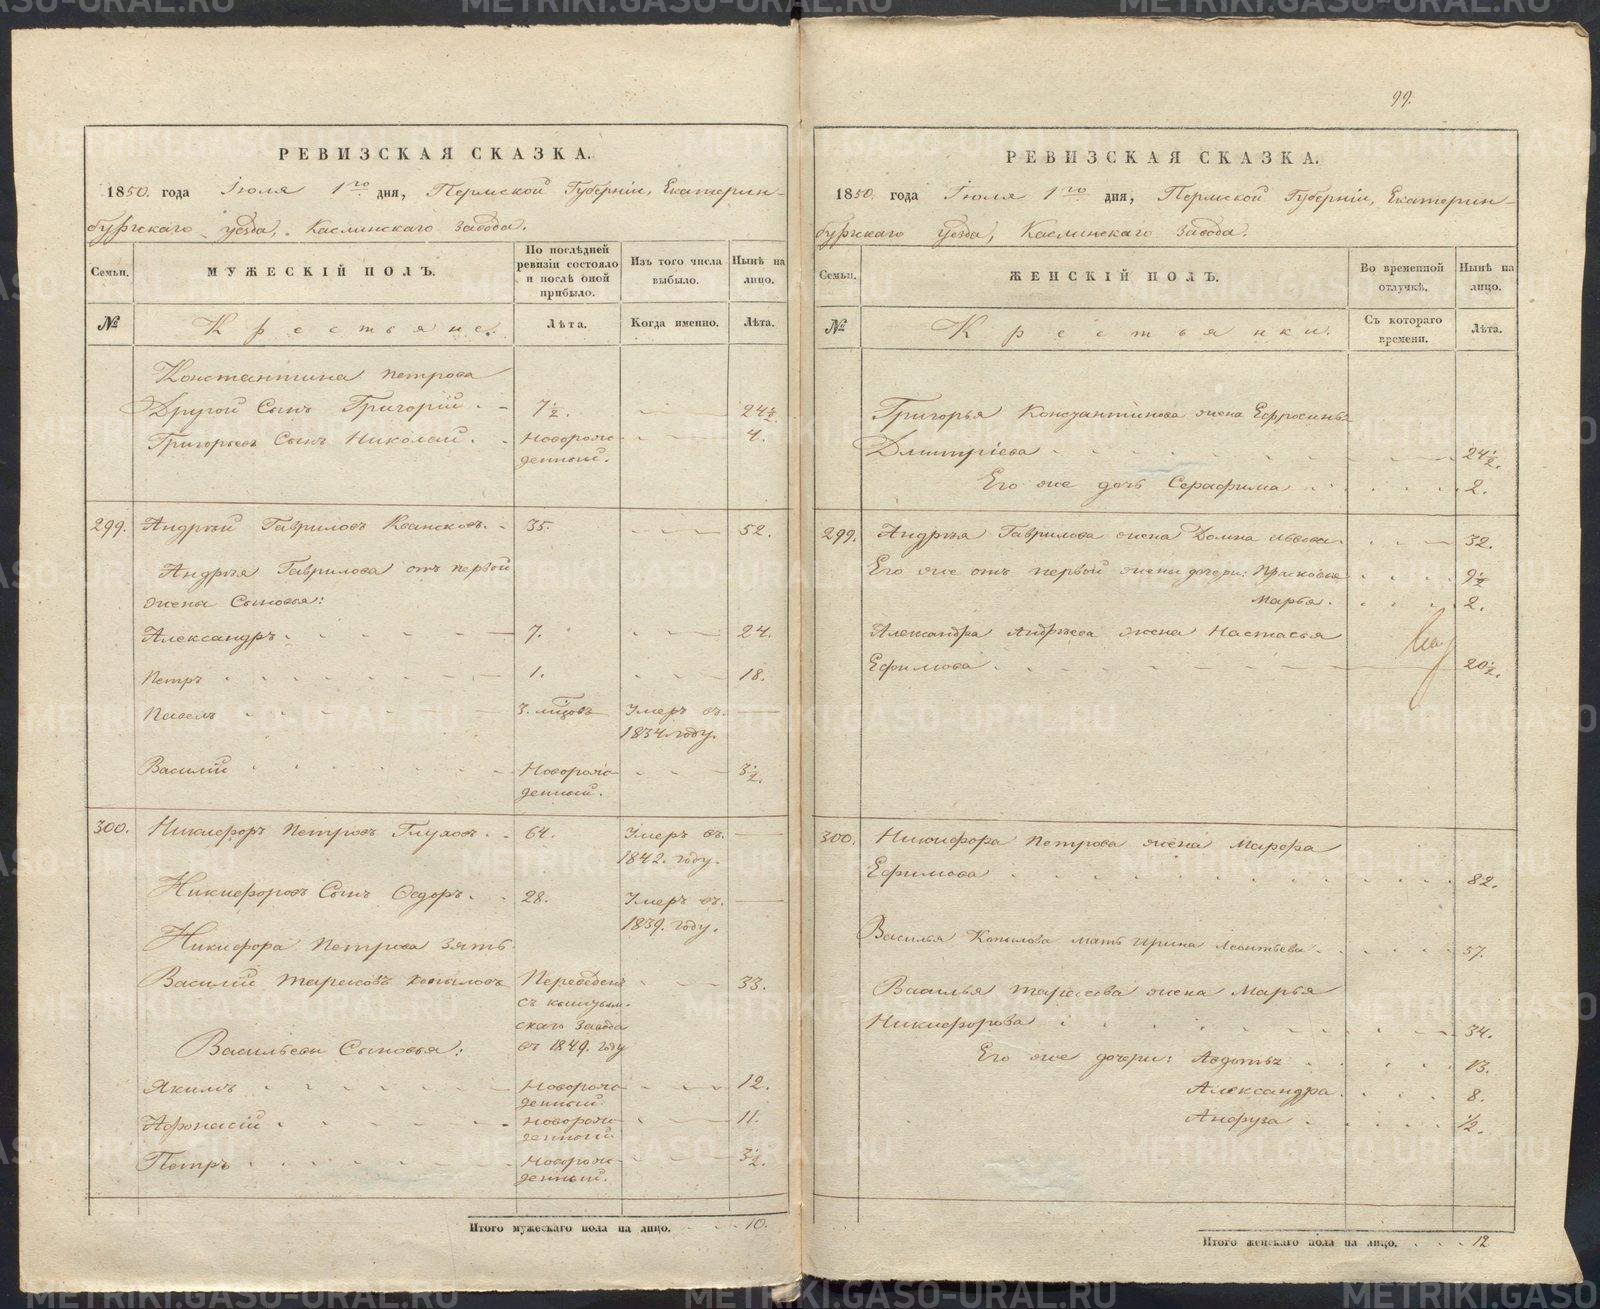 99.
РЕВИЗСКАЯ СКАЗКА.
1850. года Іюля 1го дня, Пермской Губерніи, Екатерин-
бургскаго уезда, Каслинскаго завода.
Семьи.
МУЖЕСКІЙ ПОЛЪ.
По послѣдней ревизіи состояло и послѣ оной прибыло.
Изъ того числа выбыло.
Нынѣ на лицо.
№
Крестьяне.
Лѣта.
Когда именно.
Лѣта.
Константина Петрова
Другой Сынъ Григорій. 7½. 24½
Григорьевъ Сынъ Николай. Новорож- 4.
денный.
299. Андрей Гавриловъ 35. 52.
Андрея Гаврилова отъ первой
жены Сыновья:
Александръ 7. 24.
Петръ 1. 18.
Павелъ 3. Умеръ въ
1834 году.
Василій Новорож- 3½.
денный.
300. Никифоръ Петровъ Глуховъ. 64. Умеръ въ
1842. году.
Никифоровъ Сынъ Ѳедоръ. 28. Умеръ въ
1839. году.
Никифора Петрова зять
Василій Тарасовъ Копыловъ Переведенъ 33.
съ
скаго завода
Васильевы Сыновья: въ 1849. году
Якимъ Новорож- 12.
денный
Афонасій Новорож- 11.
денный
Петръ Новорож- 3½.
денный.
Итого мужескаго пола на лицо. 10.
РЕВИЗСКАЯ СКАЗКА.
1850. года Іюля 1го дня, Пермской Губерніи, Екатерин-
бургскаго уезда, Каслинскаго завода.
Семьи.
ЖЕНСКІЙ ПОЛЪ.
Во временной отлучкѣ.
Нынѣ на лицо.
№
Крестьянки.
Съ котораго времени.
Лѣта.
Григорья Константинова жена Ефросинья
Дмитріева 24½.
Его же дочь Серафима 2.
299. Андрея Гаврилова жена Домна Львова 32.
Его же отъ первой жены дочери: Прасковья 9½
Марья. 2.
Александра Андреева жена Настасья
Ефимова 20½.
300. Никифора Петрова жена Марфа
Ефимова 82.
Василья Копылова мать Ирина Леонтьева 57.
Василья Тарасова жена Марья
Никифорова 34.
Его же дочери: Авдотья 13.
Александра 8.
Анфуза ½.
Итого женскаго пола на лицо. 12
METRIKI.GASO-URAL.RU